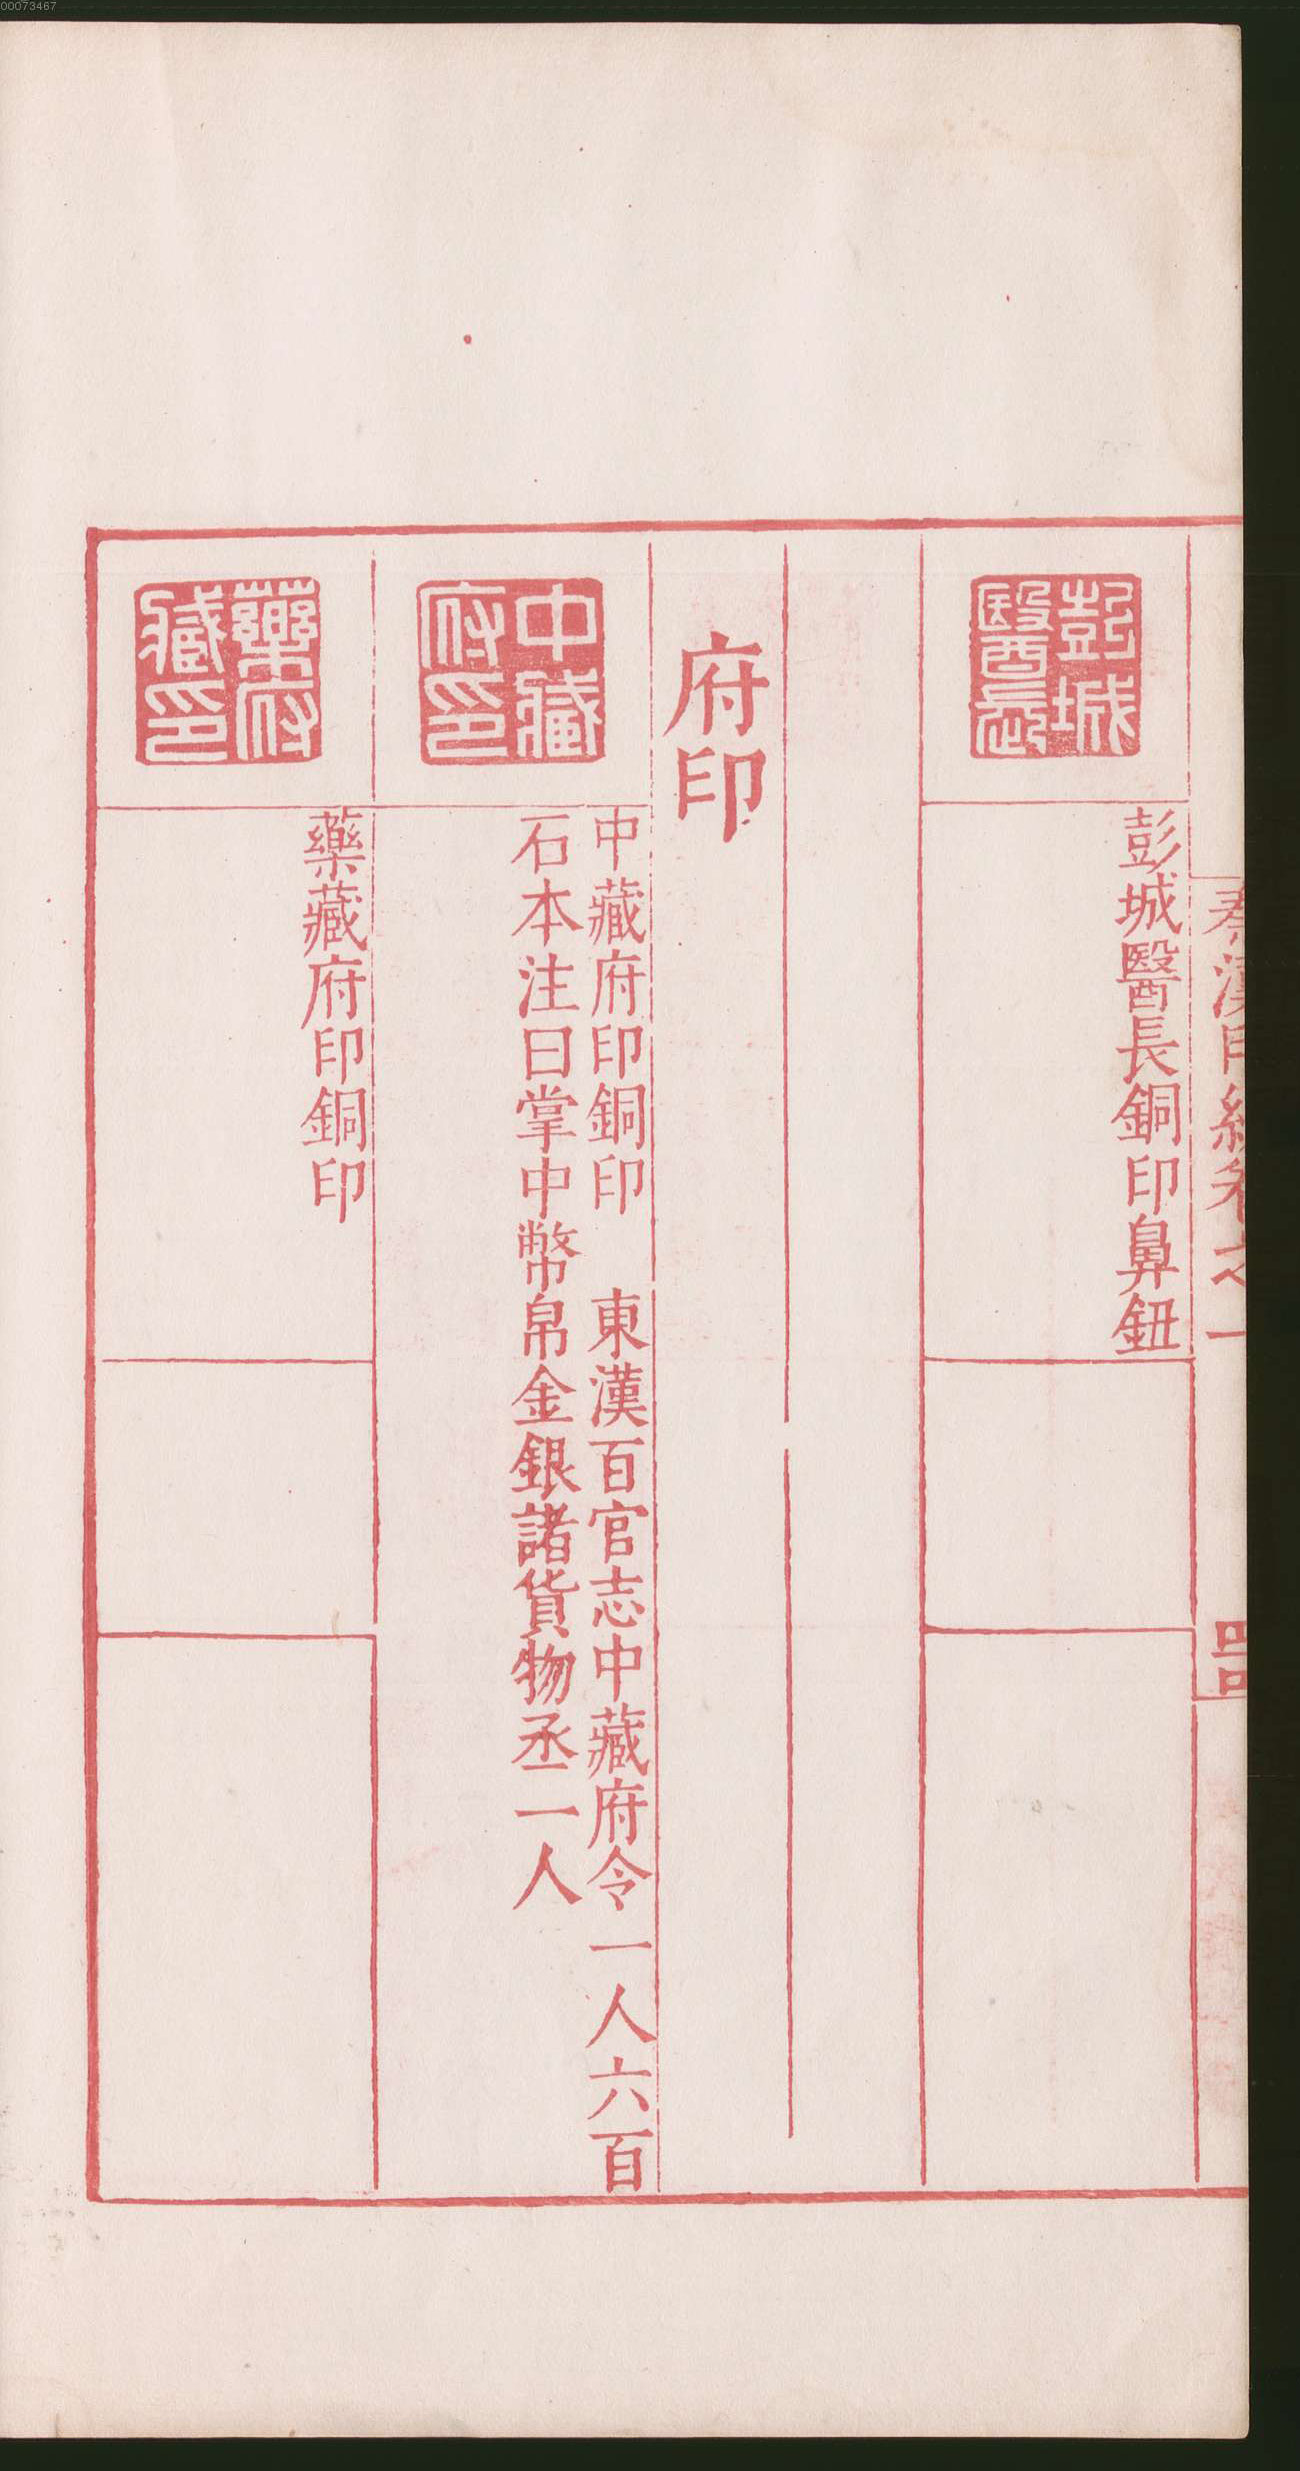 00073467
秦漢印統卷之一
彭城
醫長
彭城醫長銅印鼻鈕
府印
中藏
府印
中藏府印銅印　東漢百官志中藏府令一人六百
石本注曰掌中幣帛金銀諸貨物丞一人
藥府
藏印
藥藏府印銅印